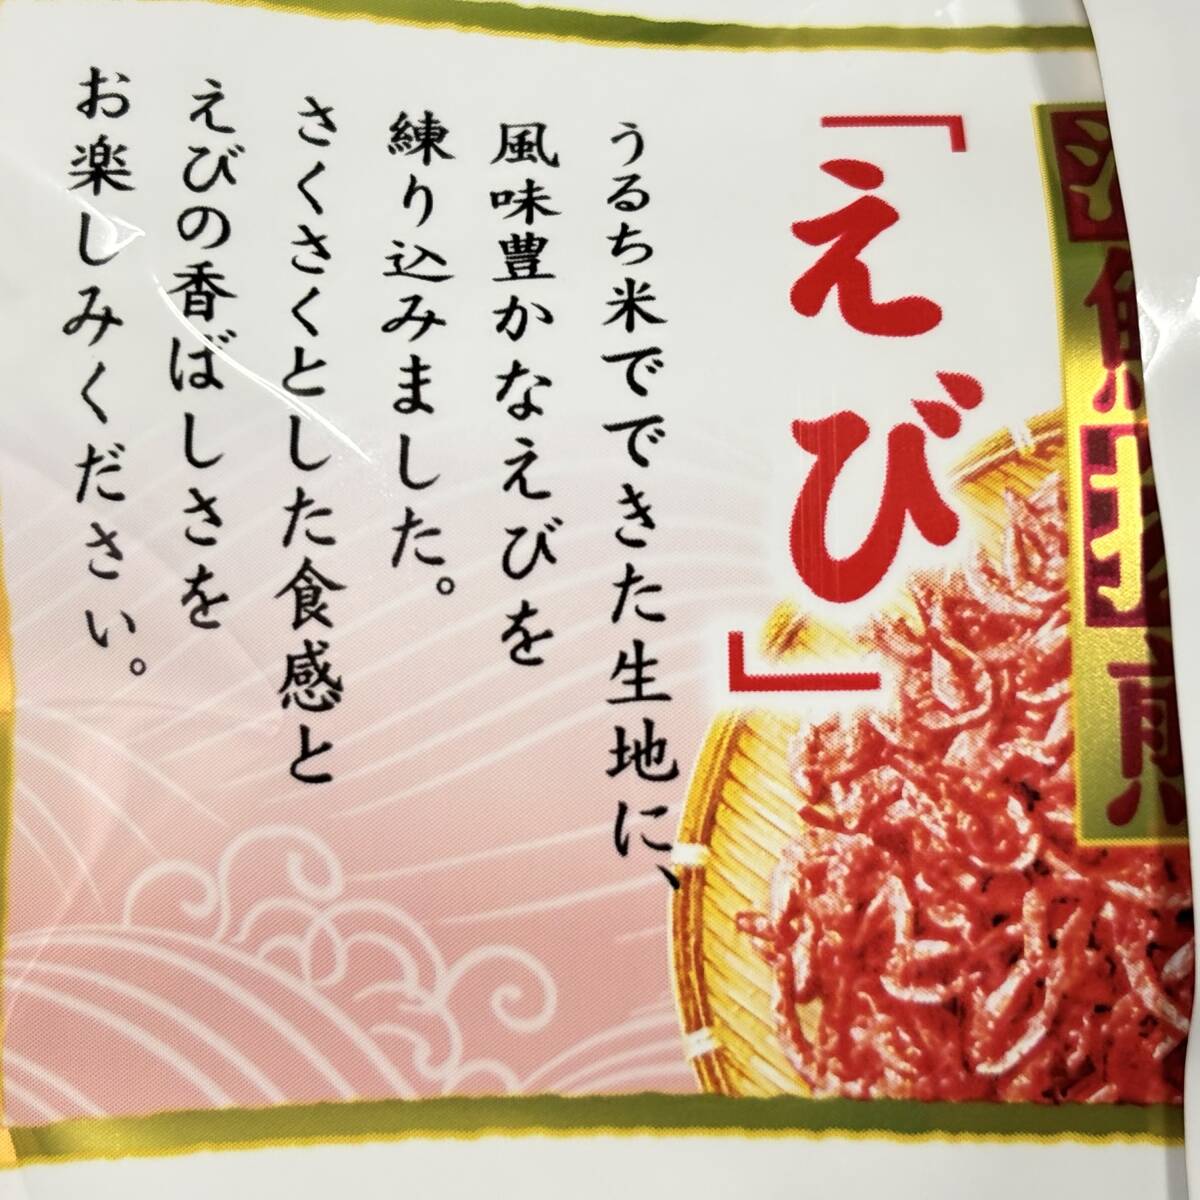 「えび」
うるち米でできた生地に、
風味豊かなえびを
練り込みました。
さくさくとした食感と
えびの香ばしさを
お楽しみください。